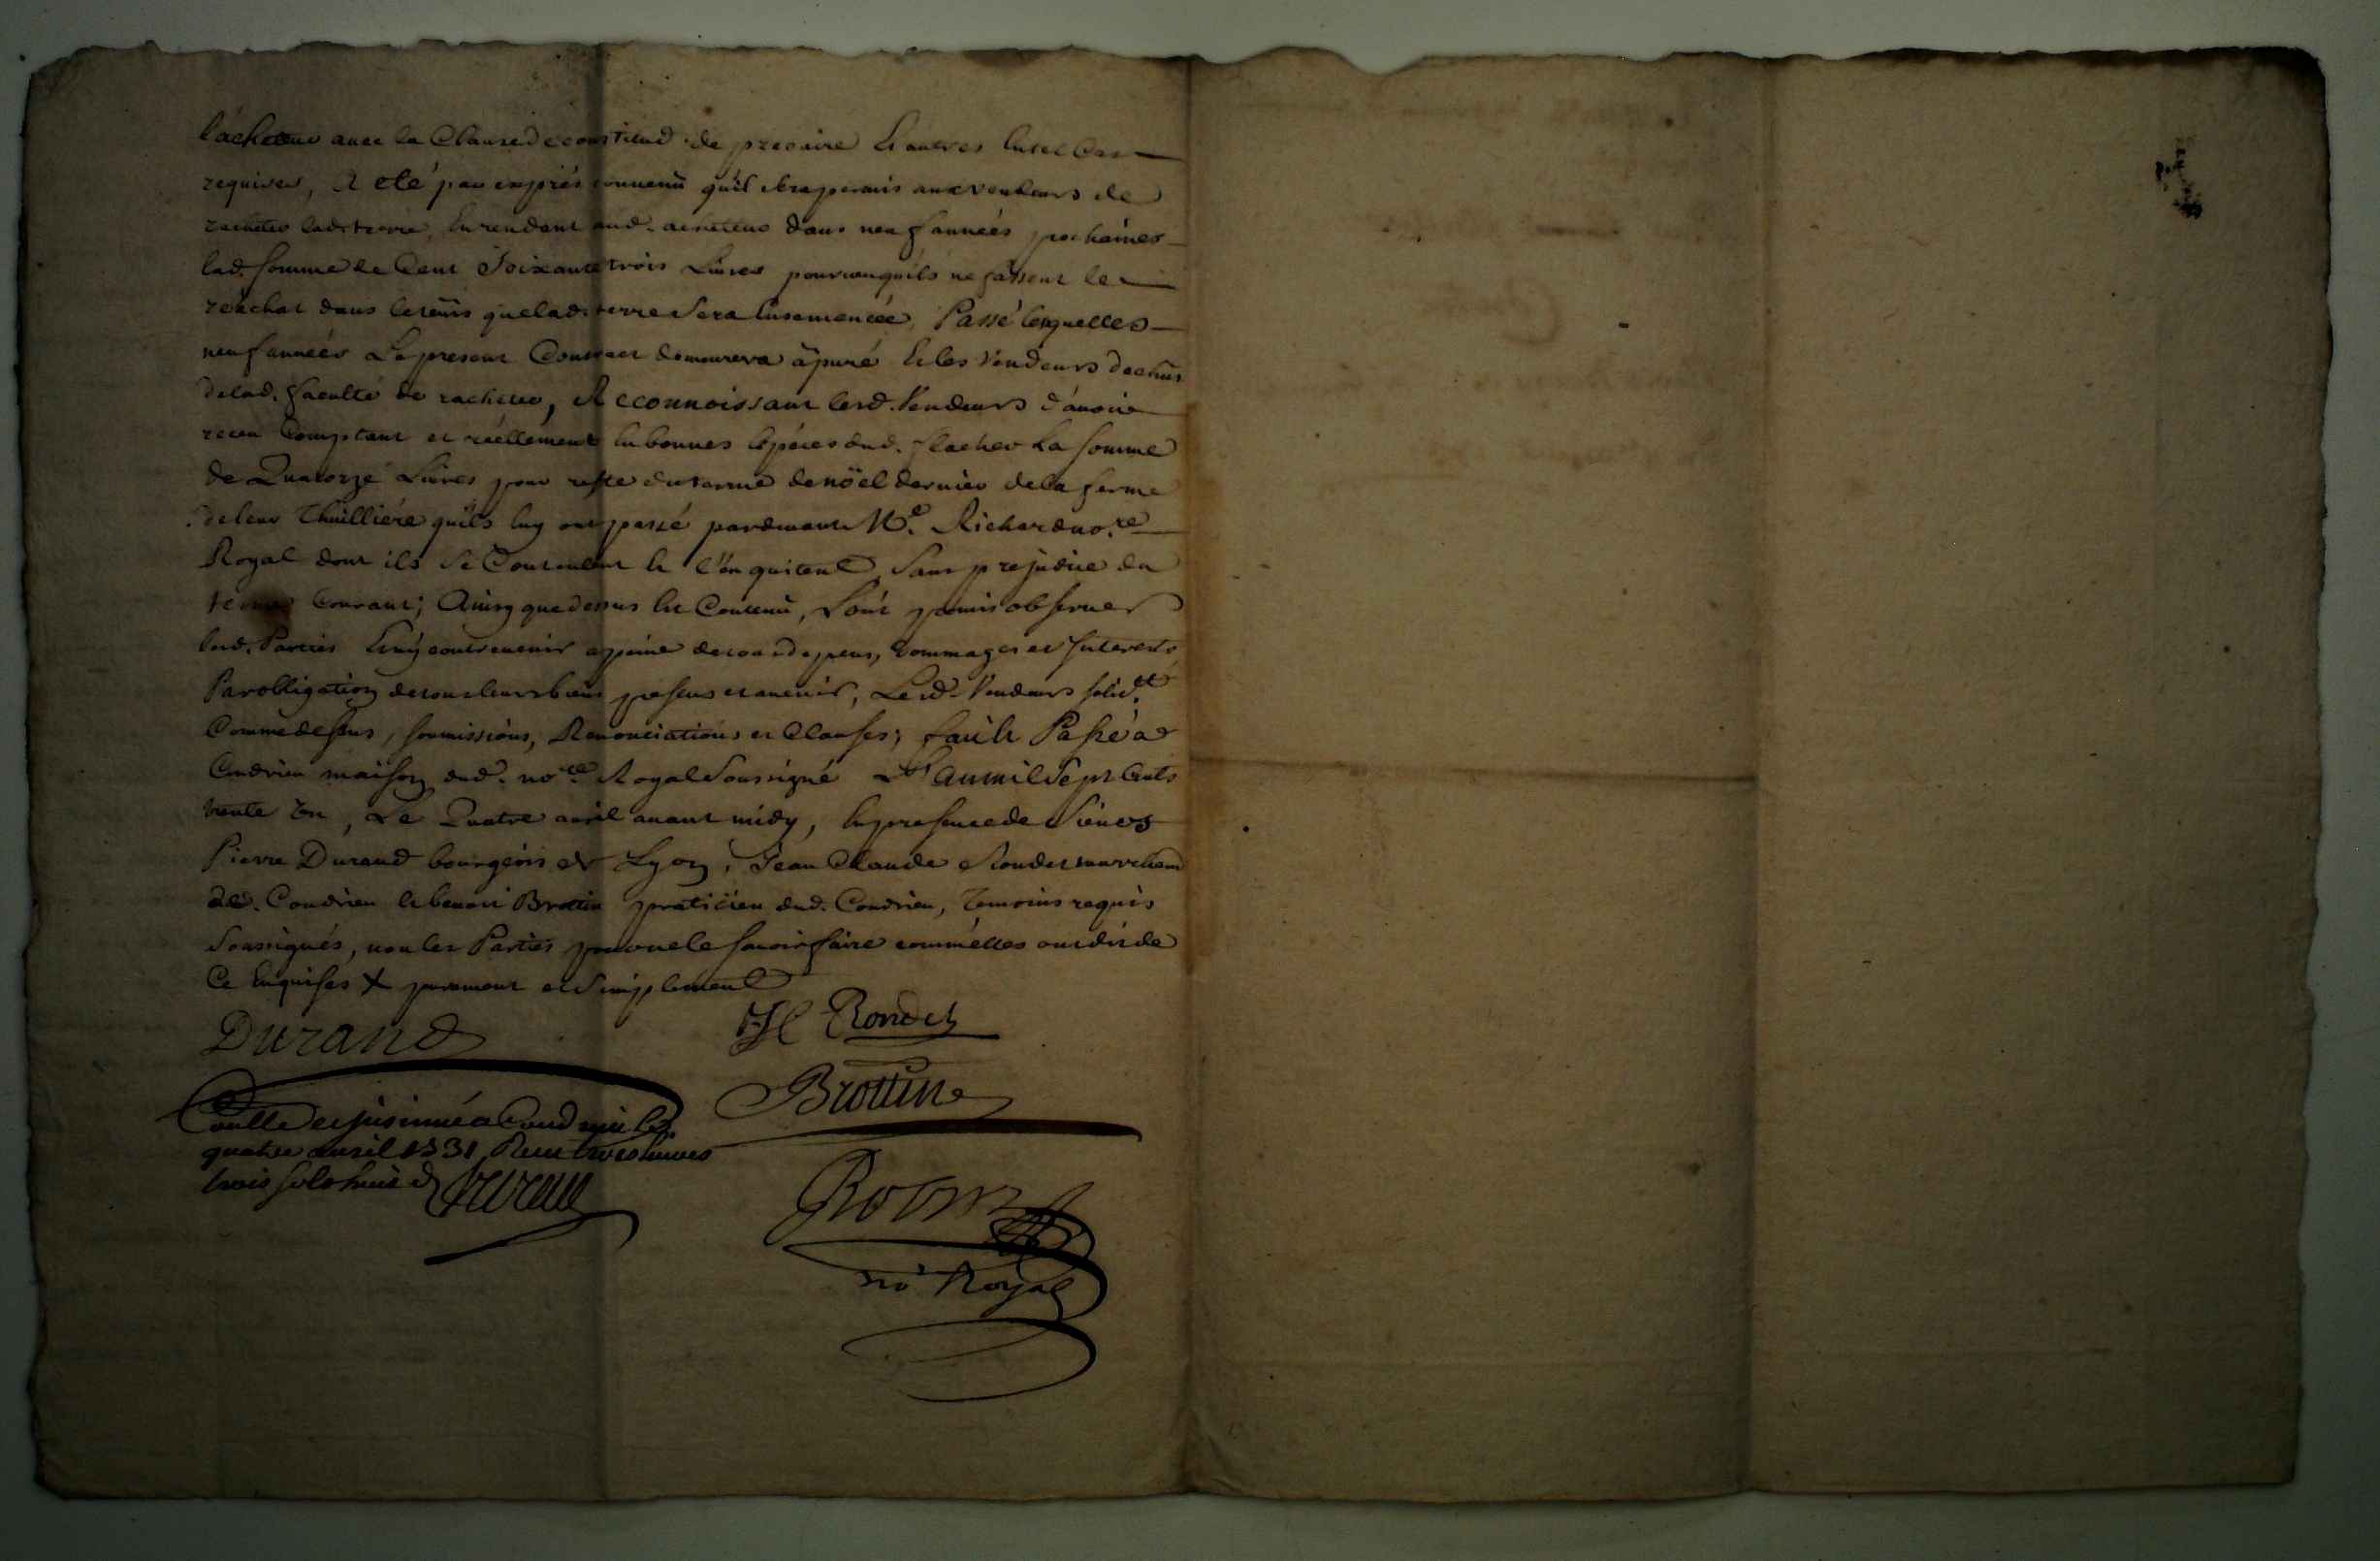 l'acheteur avec la Clause de constitud de precaire & autres en tel cas
requises, A eté par exprés convenu qu'il sera permis aux vendeurs de
racheter lad. terre, En rendant aud. acheteur dans neuf années prochaines
lad. somme de Cent Soixante trois Livres pourvu qu'ils ne fassent le
rachat dans le tems que lad. terre Sera Ensemencée, Passé lesquelles
neuf années Le present Contract demeurera apuré & les Vendeurs dechus
de lad. faculté de racheter, Reconnoissant lesd. Vendeurs d'avoir
receu Comptant et réellement En bonnes Espéces dud. flacher La somme
de Quatorze Livres pour reste du terme de nöel dernier de la ferme
de leur Thuilliére qu'ils luy ont passé pardevant Me. Richard no.re
Royal dont ils Se Contentent & l'en quitent, Sans prejudice du
terme Courant; Ainsy que dessus Est Contenu, L'ont promis observer
lesd. Parties & n'y contrevenir a peine de tous depens, dommages et Interests
Par obligation de tous leurs biens presens et avenir, Lesd. Vendeurs solid.t
Comme dessus, soumissions, Renonciations et Clauses; fait & Passé a
Condrieu maison dud. no.re Royal Soussigné L'an mil Sept Cents
trente Un, Le Quatre avril avant midy, En presence de Sieurs
Pierre Durand bourgeois de Lyon, Jean Claude Rondet marchand
dud. Condrieu & benoit Brottin praticien dud. Condrieu, Temoins requis
Soussignés, non les Parties pour ne le savoir faire comm'elles ont dit de
Ce Enquises X purement et Simplement
Durand
JC Rondet
Brottin
Conllé et insinué a Condrieu le
quatre avril 1731 Receu trois livres
trois sols huit d
no.re Royal